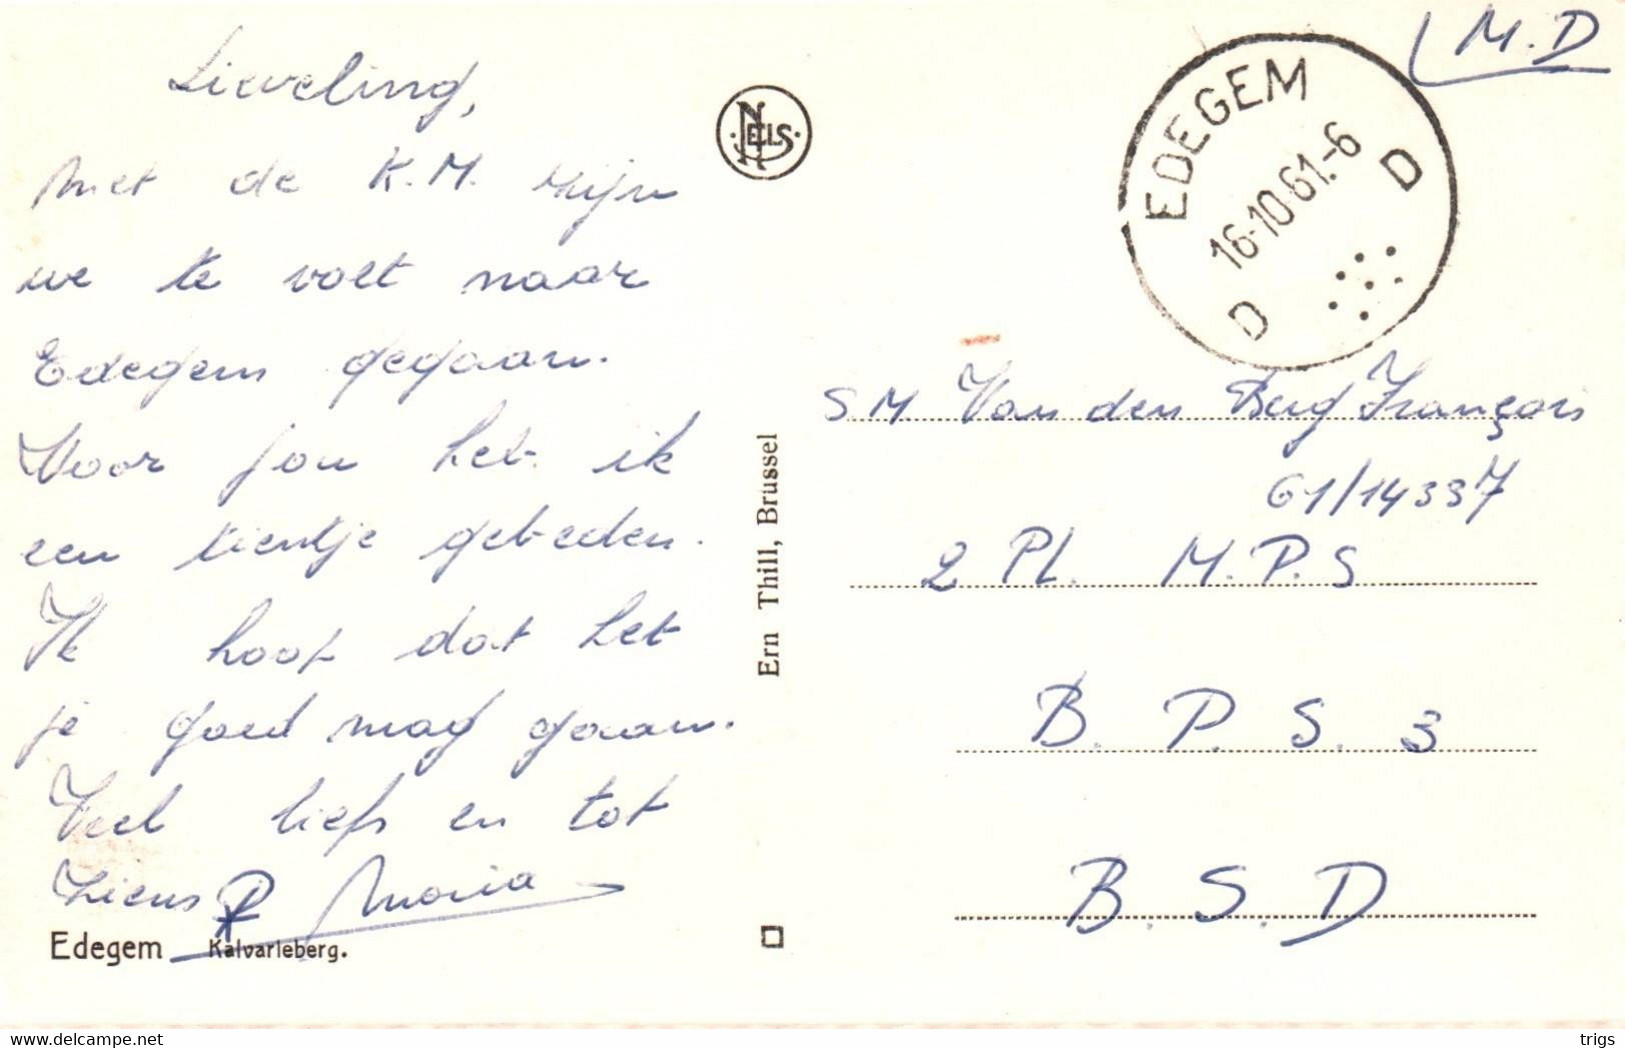 Lieveling,
Met de K.M. zijn
we te voet naar
Edegem gegaan.
Voor jou heb ik
een tientje gebeden.
Ik hoop dat het
je goed mag gaan.
Veel liefs en tot
ziens Maria
Edegem Kalvarieberg.
NELS
Ern Thill, Brussel
M.D
EDEGEM
16-10-61.-6
D D
SM Van den Berg François
61/14337
2 Pl. M.P.S
B.P.S. 3
B.S.D
delcampe.net
trigs